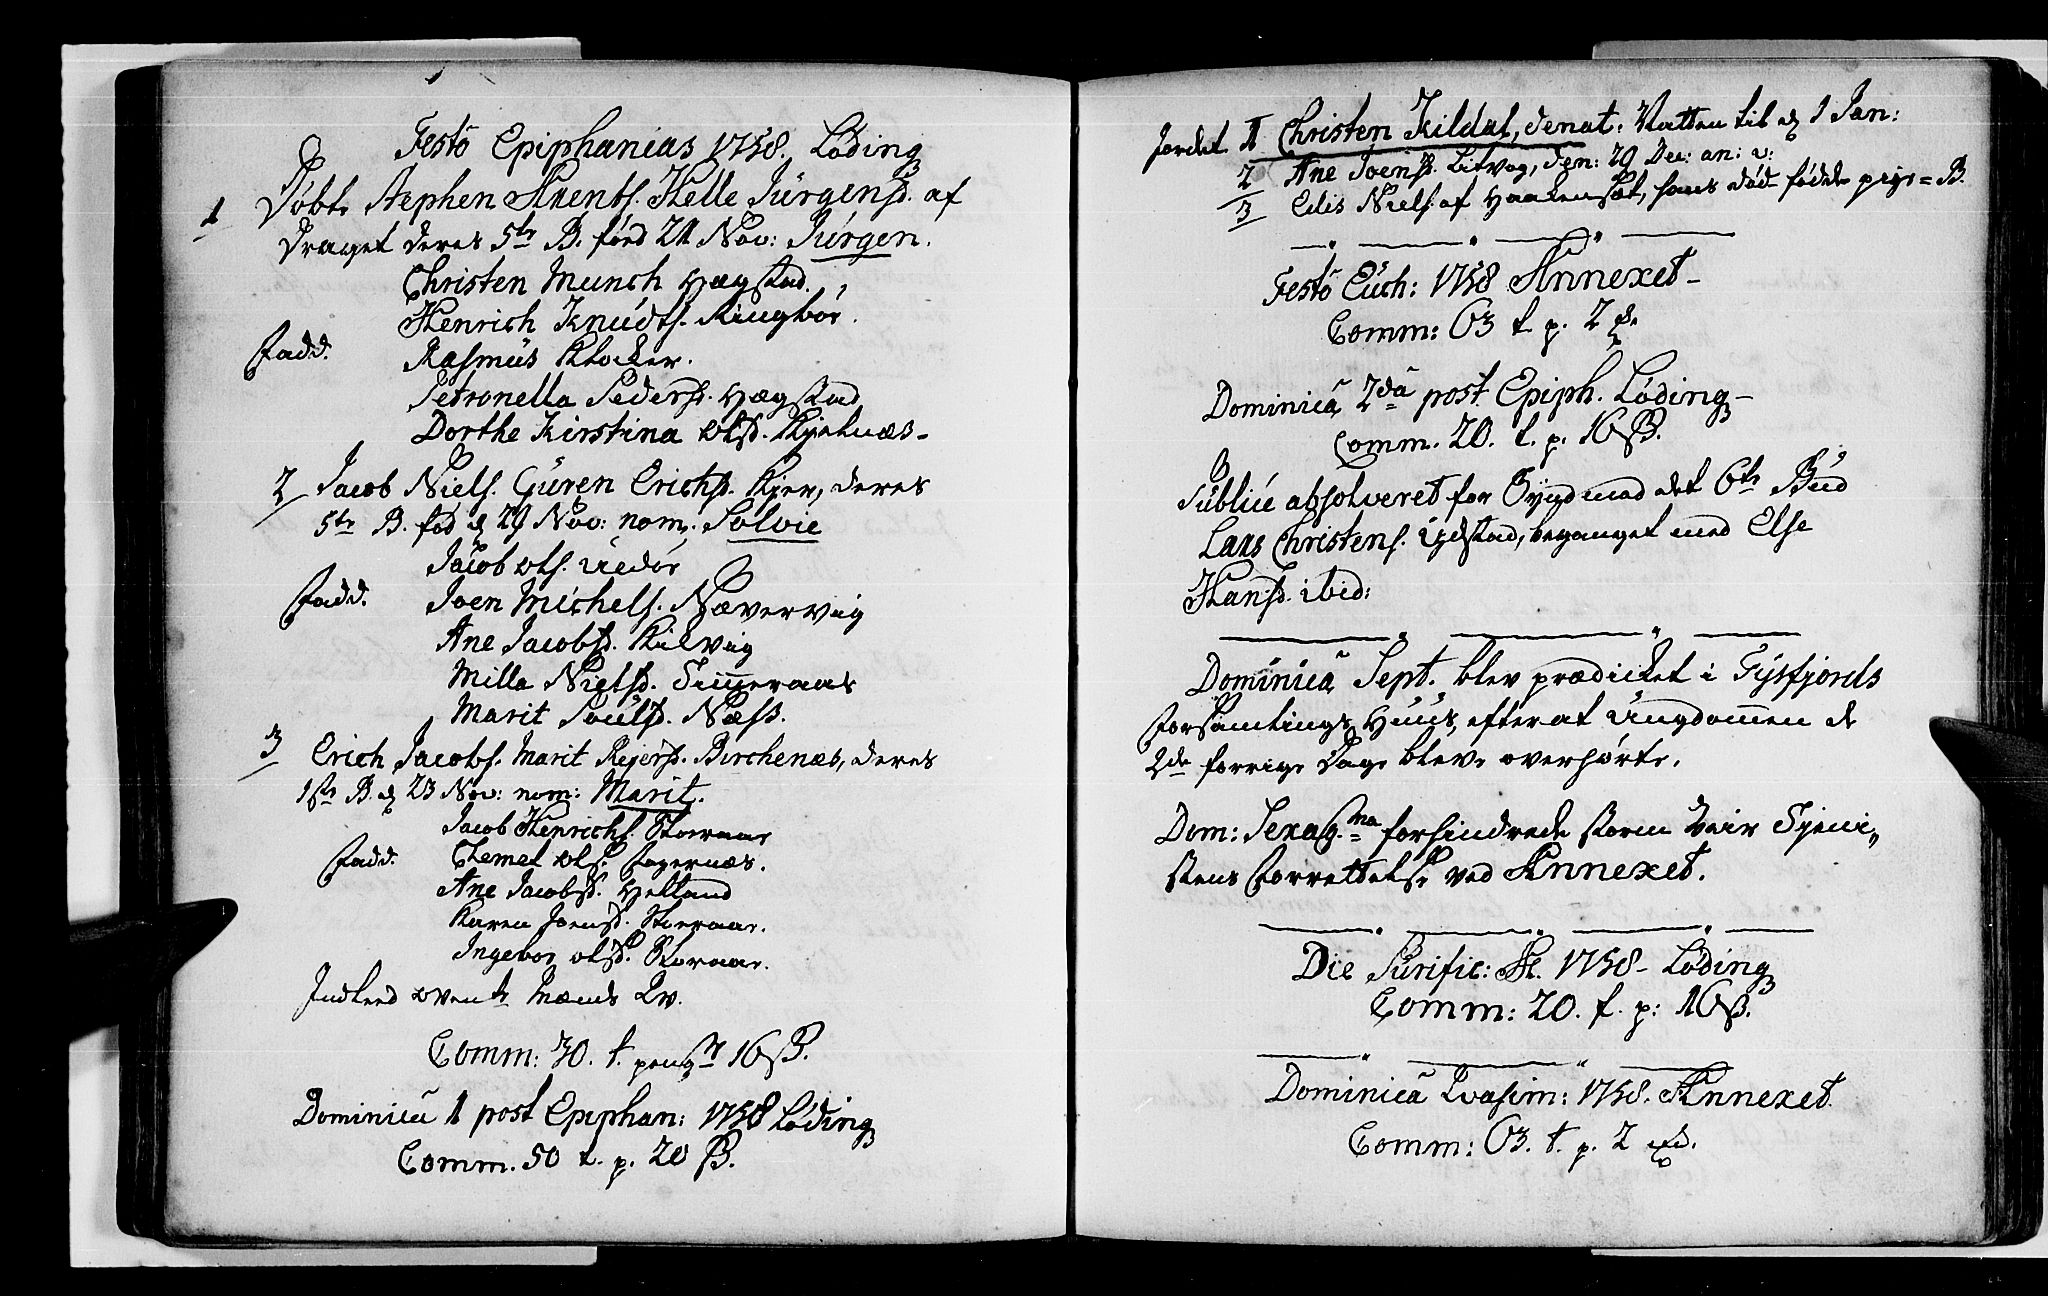 Festo Epiphanias 1758. Løding
1 Døbt Stephen Arents. Helle Jürgensd. af
Draget deres 5te B. född 21 Nov: Jürgen.
Christen Munch Hægstad.
Henrich Knudts. Ringbøe.
Fadd. Rasmus Klocker.
Petronella Pedersd. Hægstad
Dorthe Kirstina Olsd. Kjelnæs
2 Jacob Niels. Güren Erichsd. Kjer, deres
5te B. fød d 29 Nov: nom. Solvie
Jacob Ols.
Fadd. Joen Michels. Nævervig
Ane Jacobsd. Kilvig
Milla Nielsd. Tømmeraas
Marit Poulsd. Næss.
3 Erich Jacobs. Marit Rejersd. Birchenæs, deres
1ste B. d 23 Nov: nom: Marit.
Jacob Henrichs. Storaas
Fadd. Clemet Ols. Fagernæs.
Ane Jacobsd. Helland
Karen Joensd. Storaas.
Ingebor Olsd. Storaas.
Indleed Mænds Qv.
Comm: 30. t. penge 16 ß.
Dominica 1 post Epiphan: 1758 Løding
Comm. 50 t. p. 20 ß.
Jordet 1 Christen Kildal, denat: Natten til d 1 Jan:
2 Ane Joensd. Litvog, den: 29 Dec: an: v:
3 Edis Niels. af Haakenset, hans død fødde pige-B.
Festo Euch: 1758 Annexet-
Comm: 63 t. p. 2
Dominica 2da post Epiph. Løding-
Comm. 20. t. p. 16 ß.
Publice absolveret for Synd mod det 6te Bud
Lars Christens. Lydstad, beganget med Else
Hansd. ibid:
Dominica Sept. blev prædicket i Tysfjords
Forsamlings Huus, efter at Ungdommen de
2de forrige Dage bleve overhørte.
Dom: Sexag.ma forhindrede storm Veir Tjeni-
stens Forrettelse ved Annexet.
Die Purific: M. 1758- Løding
Comm: 20. t. p: 16 ß.
Dominica Qvasim: 1758. Annexet
Comm: 63. t. p. 2